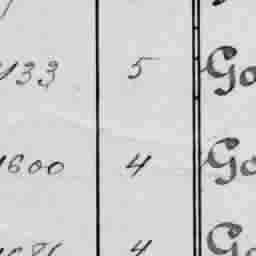 433 5 Go
1600 4 Go
4 Go